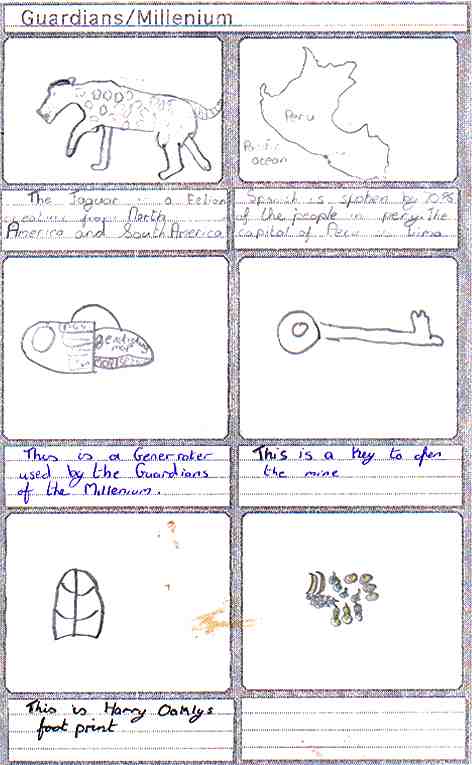 Guardians/Millenium
Peru
Pacific
ocean
The Jaguar is a Eelion
creature from North
America and South America
Spanish is spoken by 70%
of the people in peru. The
capital of Peru is Lima
map
This is a Generroter
used by the Guardians
of the Millenium.
This is a key to open
the mine
This is Harry Oaknlys
foot print